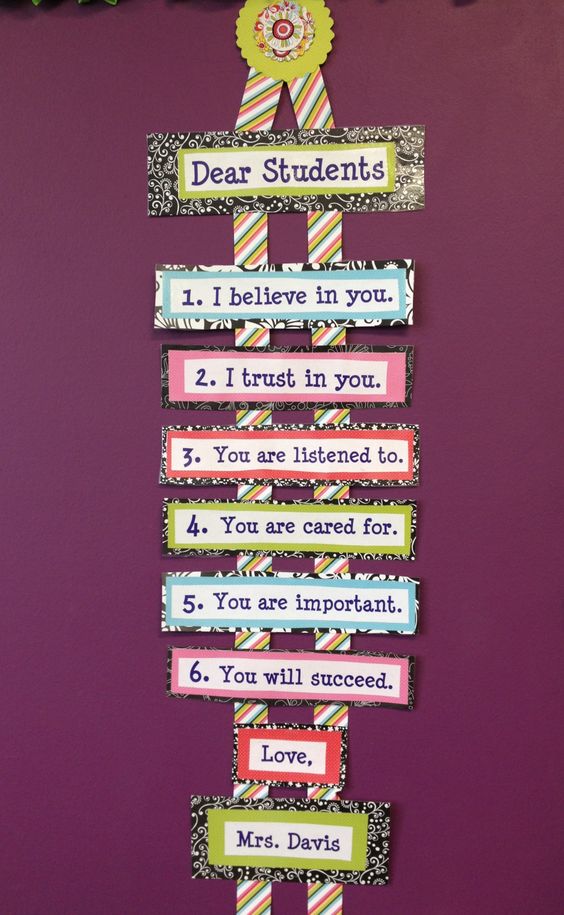 Dear Students
1. I believe in you.
2. I trust in you.
3. You are listened to.
4. You are cared for.
5. You are important.
6. You will succeed.
Love,
Mrs. Davis